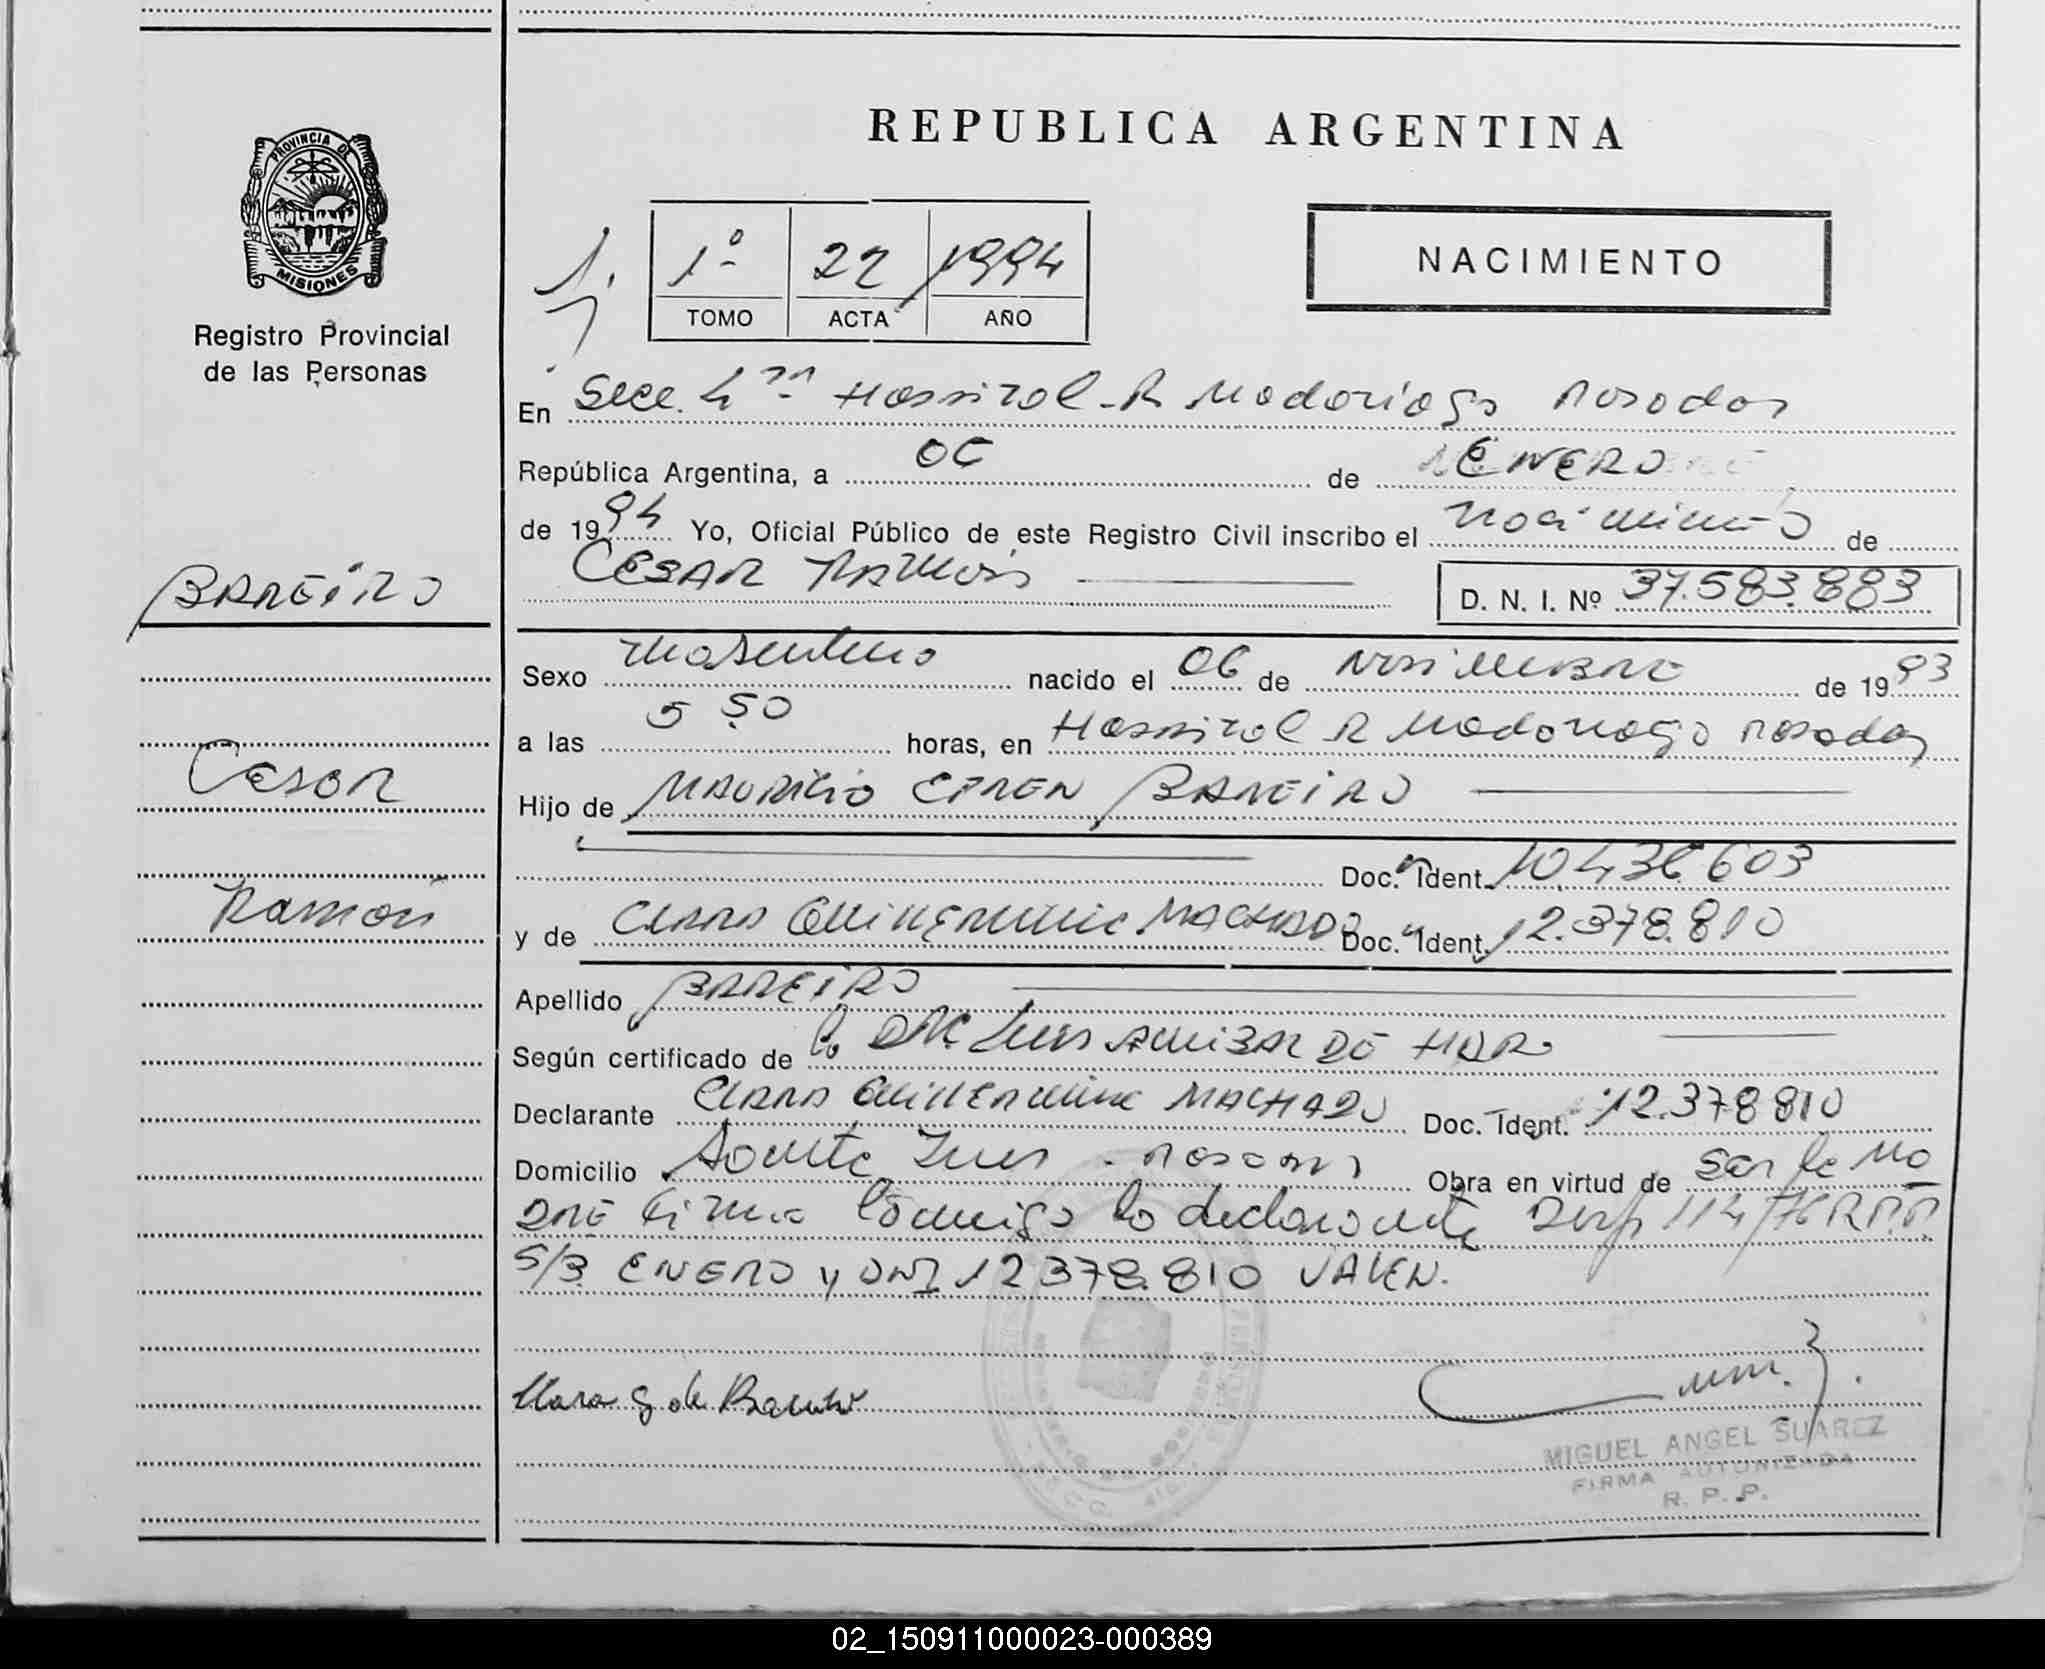 REPUBLICA ARGENTINA
PROVINCIA DE MISIONES
Registro Provincial
de las Personas
1º 22 1994
TOMO ACTA AÑO
NACIMIENTO
En Secc. 4ta Hospital R Madariaga Posadas
República Argentina, a 06 de ENERO
de 1994 Yo, Oficial Público de este Registro Civil inscribo el Nacimiento de
CESAR RAMON
D. N. I. Nº 37.583.883
BAREIRO
Cesar
Ramon
Sexo Masculino nacido el 06 de NOVIEMBRE de 1993
a las 5 50 horas, en Hospital R Madariaga Posadas
Hijo de MAURICIO EFREN BAREIRO
Doc. Ident. 10.436.603
y de CLARA GUILLERMINA MACHADO Doc. Ident. 12.378.810
Apellido BAREIRO
Según certificado de DR. LUIS DE HARO
Declarante CLARA GUILLERMINA MACHADO Doc. Ident. 12.378810
Domicilio Posadas Obra en virtud de Ser la Ma
DRE Firma Conmigo la declarante Disp 114/76 R.P.P.
S/B. ENERO y DNI 12 378.810 VALEN.
Clara G de Bareiro
MIGUEL ANGEL SUAREZ
FIRMA AUTORIZADA
R. P. P.
02_150911000023-000389